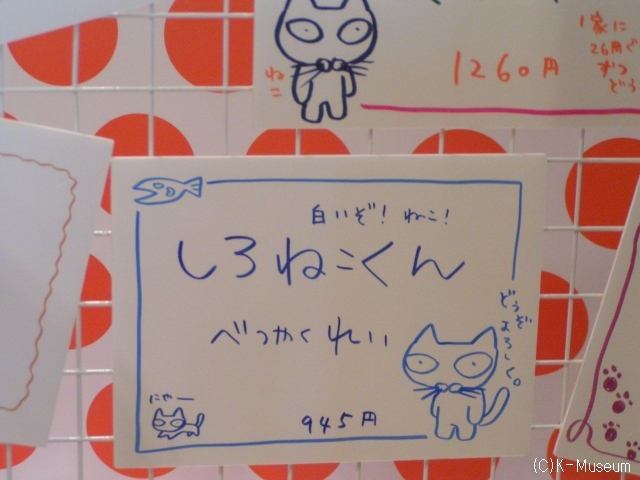 1家に
26円ぐ
ずつ
どう
1260円
ねこ
白いぞ!ねこ!
しろねこくん
どうぞ
よろしく。
にゃー
945円
(C)K-Museum